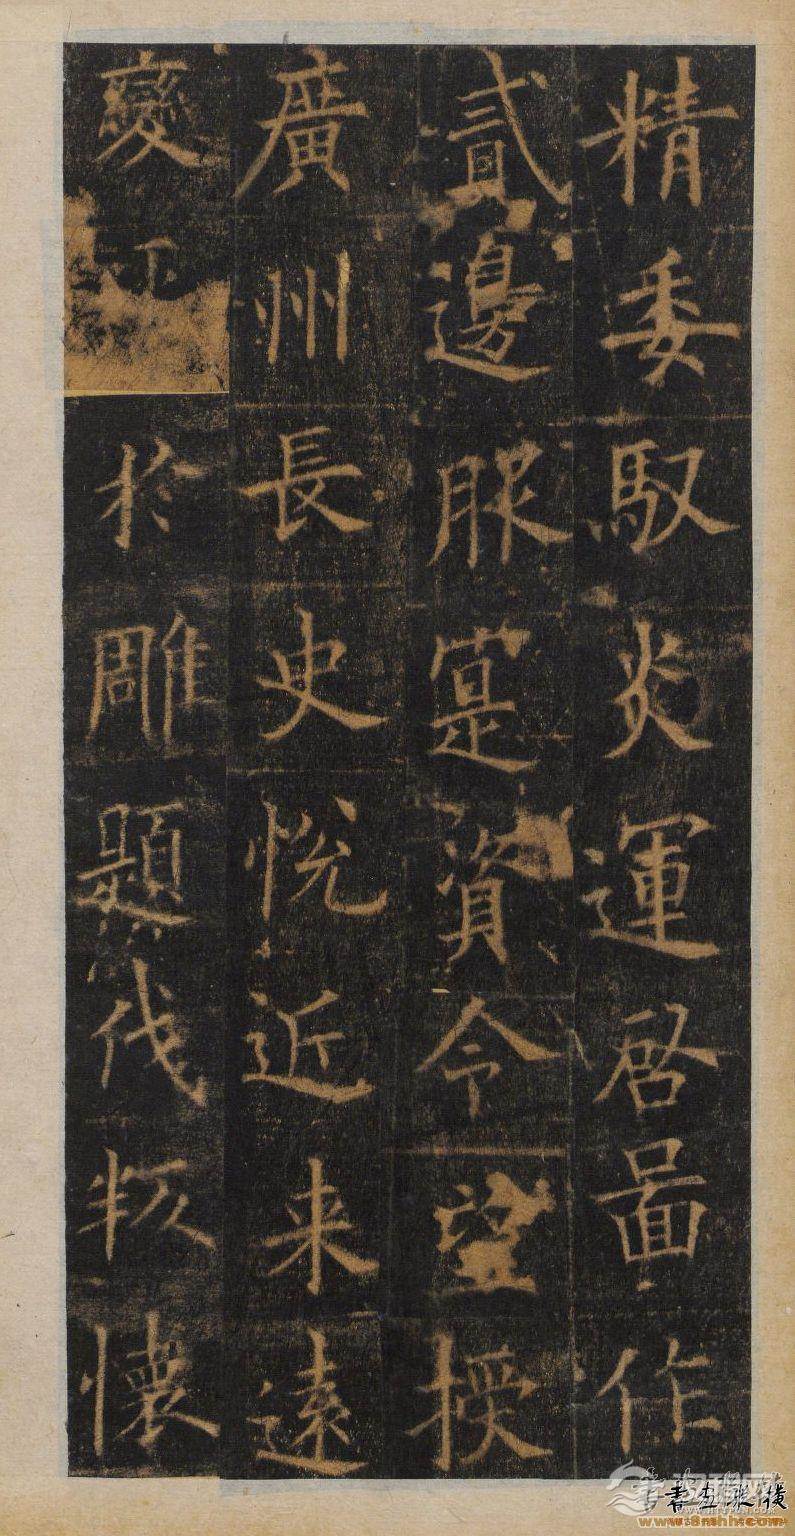 精委馭炎運啓啚作
貳邊服寔資令望授
廣州長史悦近来遠
變 於雕題伐叛懷
www.8mhh.com